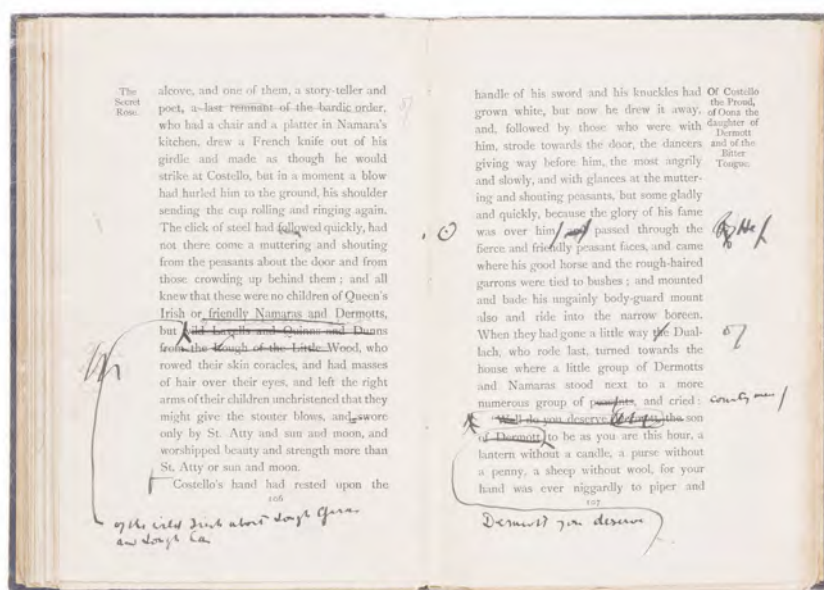 The
Secret
Rose.
alcove, and one of them, a story-teller and
poet, a last remnant of the bardic order,
who had a chair and a platter in Namara's
kitchen, drew a French knife out of his
girdle and made as though he would
strike at Costello, but in a moment a blow
had hurled him to the ground, his shoulder
sending the cup rolling and ringing again.
The click of steel had followed quickly, had
not there come a muttering and shouting
from the peasants about the door and from
those crowding up behind them; and all
knew that these were no children of Queen's
Irish or friendly Namaras and Dermotts,
but wild Lavells and Quinns and Dunns
from the Lough of the Little Wood, who
rowed their skin coracles, and had masses
of hair over their eyes, and left the right
arms of their children unchristened that they
might give the stouter blows, and swore
only by St. Atty and sun and moon, and
worshipped beauty and strength more than
St. Atty or sun and moon.
Costello's hand had rested upon the
106
of the wild Irish about Lough Gara
and Lough Cay
handle of his sword and his knuckles had
grown white, but now he drew it away,
and, followed by those who were with
him, strode towards the door, the dancers
giving way before him, the most angrily
and slowly, and with glances at the mutter-
ing and shouting peasants, but some gladly
and quickly, because the glory of his fame
was over him, and passed through the
fierce and friendly peasant faces, and came
where his good horse and the rough-haired
garrons were tied to bushes; and mounted
and bade his ungainly body-guard mount
also and ride into the narrow boreen.
When they had gone a little way the Dual-
lach, who rode last, turned towards the
house where a little group of Dermotts
and Namaras stood next to a more
numerous group of peasants, and cried:
"Well do you deserve, Dermott, the son
of Dermott, to be as you are this hour, a
lantern without a candle, a purse without
a penny, a sheep without wool, for your
hand was ever niggardly to piper and
107
Of Costello
the Proud,
of Oona the
daughter of
Dermott
and of the
Bitter
Tongue.
He
countrymen
Dermott you deserve